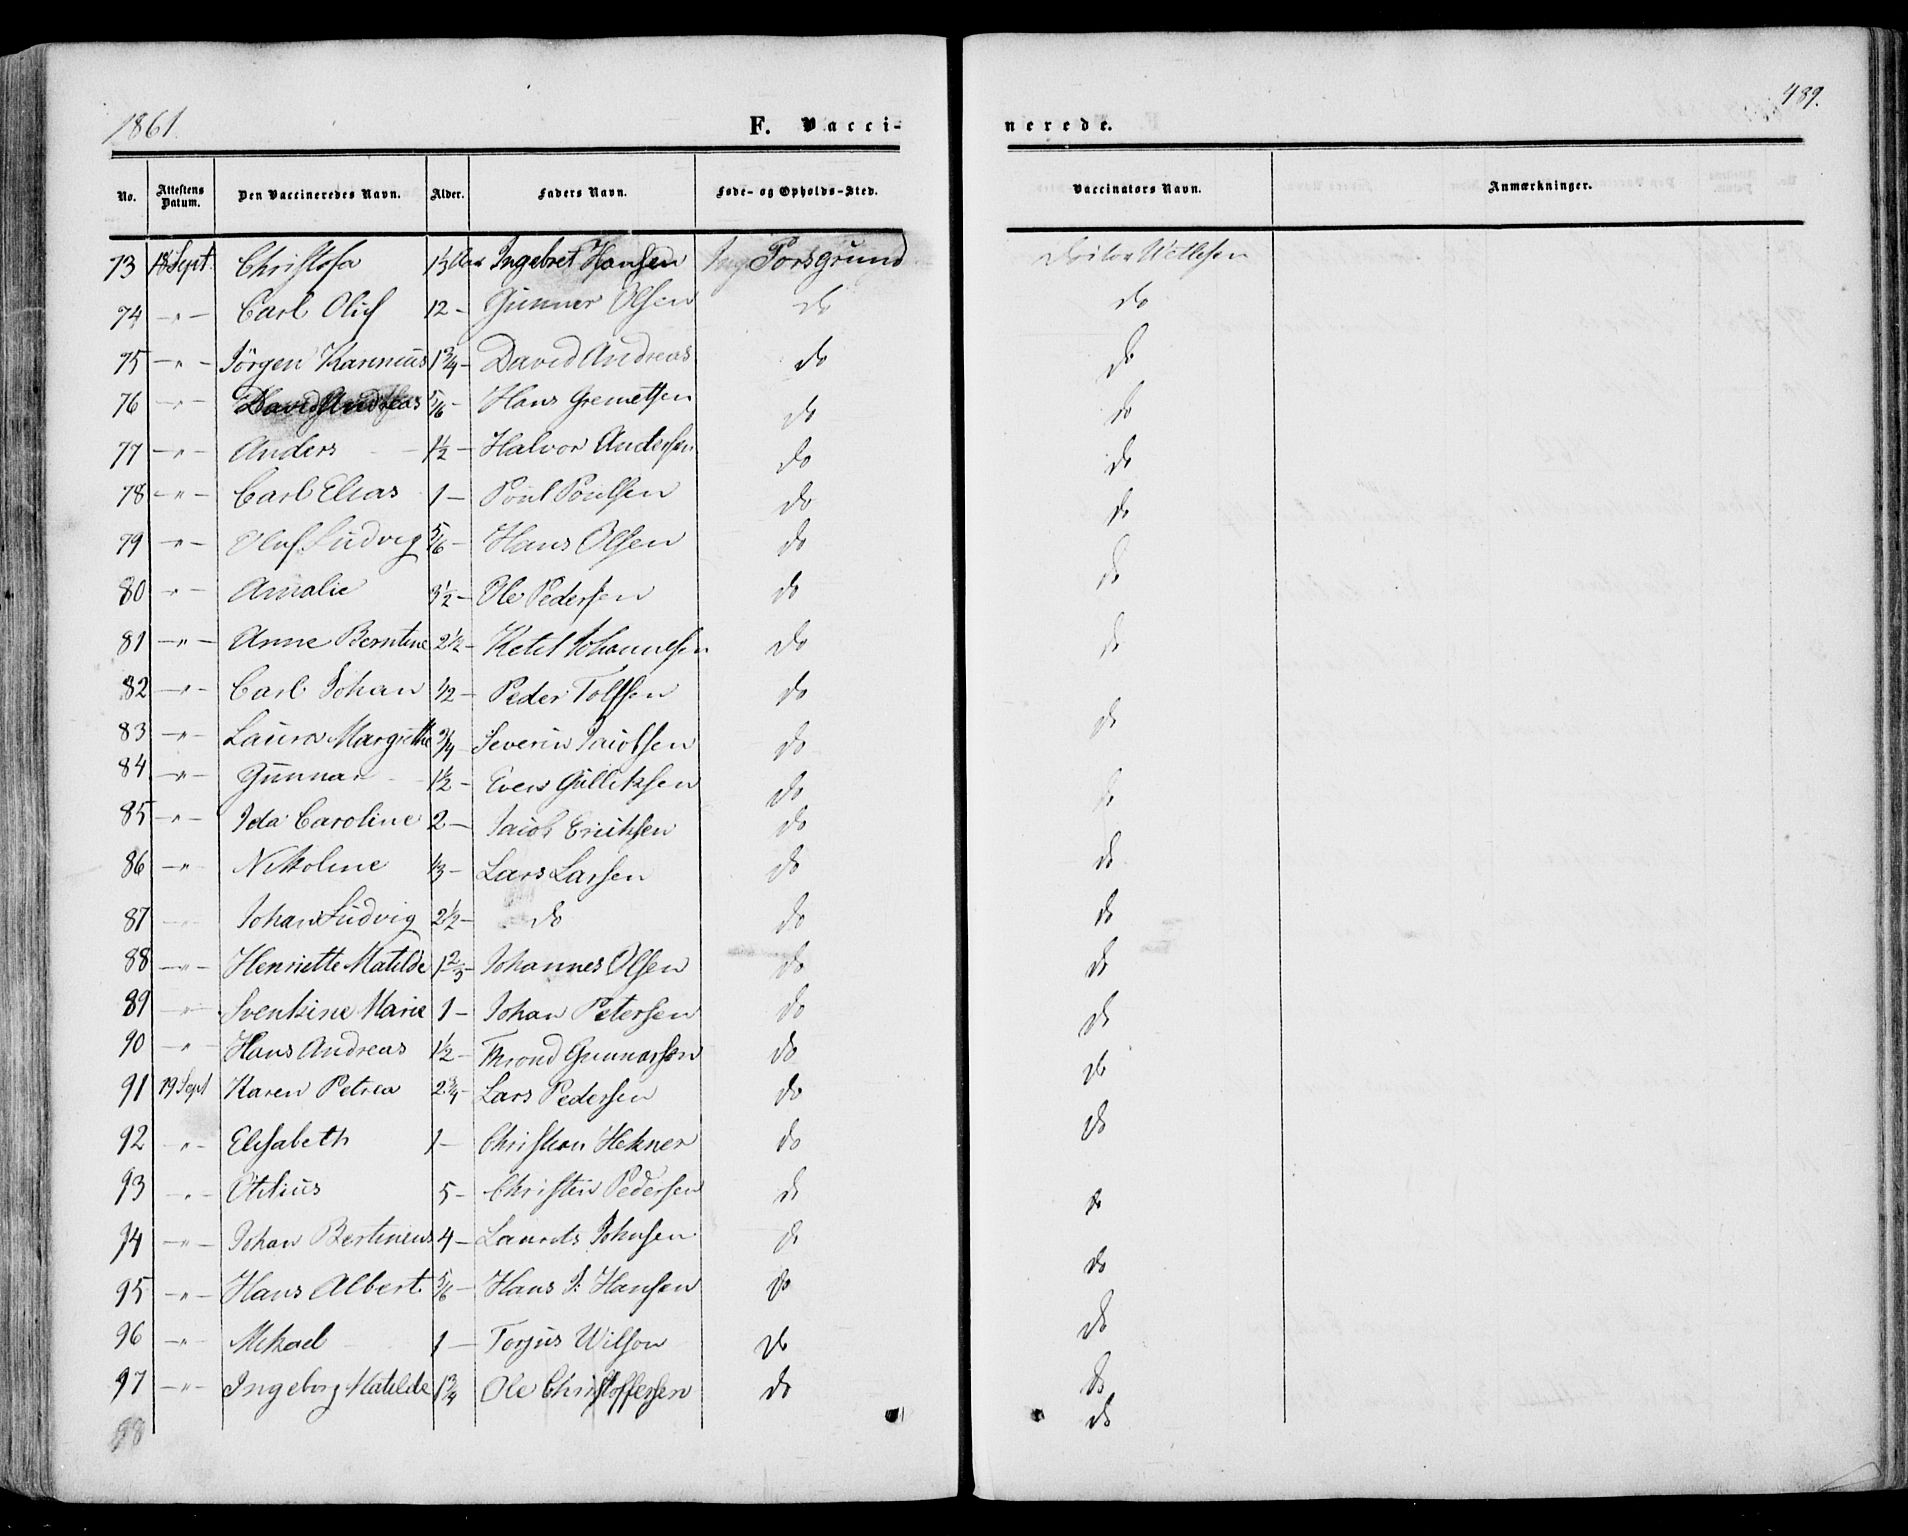 1861.
F. Vacci-
nerede.
489.
No. Attestens Datum. Den Vaccineredes Navn. Alder. Faders Navn. Føde- og Opholds-Sted. Vaccinators Navn. Anmærkninger.
73 18 Sept. Christofa Ingebret Hansen Porsgrund Doctor Wettesen
74 — " — Carl Oluf 12 - Gunner Olsen do do
75 — " — Jörgen 1 3/4 - David Andreas do do
76 — " — David Andreas 5/6 - Hans Gremetsen do do
77 — " — Anders 1 1/2 — Halvor Andersen do do
78 — " — Carl Elias 1 — Poul Poulsen do do
79 — " — Oluf Ludvig 5/6 — Hans Olsen do do
80 — " — Amalie 3 1/2 — Ole Pedersen do do
81 — " — Anne Berntine 2 1/2 - Ketel Johannesen do do
82 — " — Carl Johan 1/2 — Peder Tolfsen do do
83 — " — Laura Margrethe 3/4 Severin Jacobsen do do
84 — " — Gunnar 1 1/2 — Even Gulliksen do do
85 — " — Ida Caroline 2 — Jacob Eriksen do do
86 — " — Nikoline 1/3 — Lars Larsen do do
87 Johan Ludvig 2 1/2 — do do do
88 — " — Henriette Matilde 1 2/3 - Johannes Olsen do do
89 — " — Svenkine Marie 1 - Johan Petersen do do
90 — " Hans Andreas 1 1/2 — Thrond Gunnarsen do do
91 19 Sept Karen Petrea 2 3/4 - Lars Pedersen do do
92 — " — Elisabeth 1 — Christian Hekner do do
93 — " — Otilius 5 - Christen Pedersen do do
94 — " — Johan Bertineus 4 — Laurits Johnsen do do
95 — " — Hans Albert. 5/6 — Hans J. Hansen do do
96 — " — Mikael 1 — Torjus Wilson do do
97 — " — Ingeborg Matilde 1 3/4 Ole Christoffersen do do
98 do